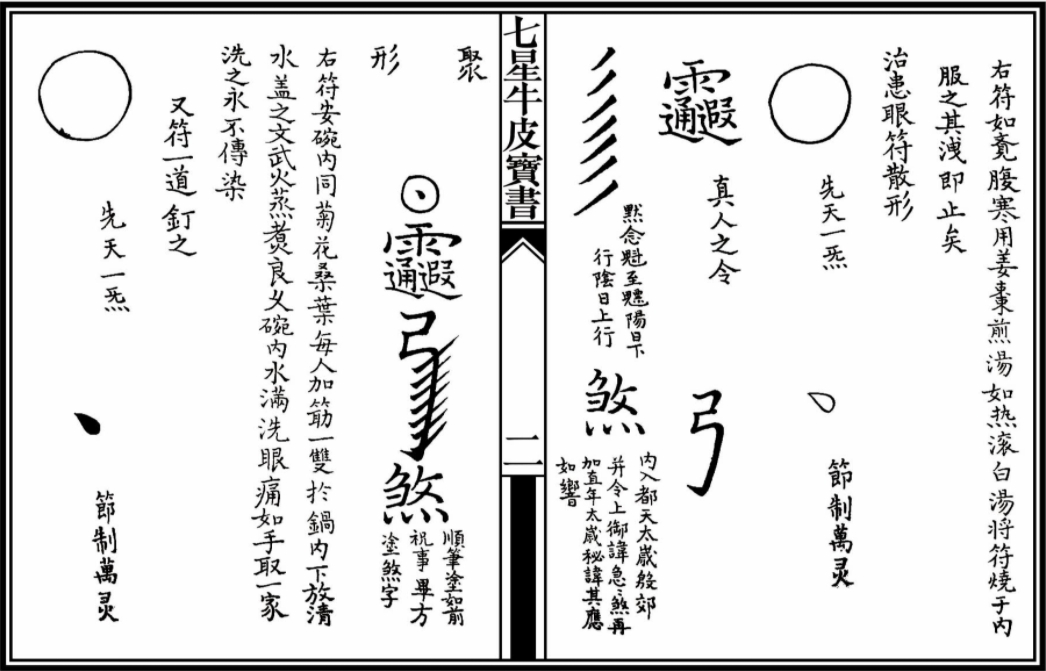 右符如竟腹寒用姜棗煎湯如热滚白湯将符燒于内
服之其洩即止矣
治患眼符散形
先天一炁
節制萬灵
真人之令
弓
默念魁至魒陽日下
行陰日上行
煞
内入都天太歲殷郊
并令上御諱急急煞再
加直年太歲秘諱其應
如響
七星牛皮寶書
二
聚
形
煞
順筆塗如前
祝事畢方
塗煞字
右符安碗内同菊花桑葉每人加筯一雙於鍋内下放清
水盖之文武火蒸煮良久碗内水满洗眼痛如手取一家
洗之永不傳染
又符一道釘之
先天一炁
節制萬灵